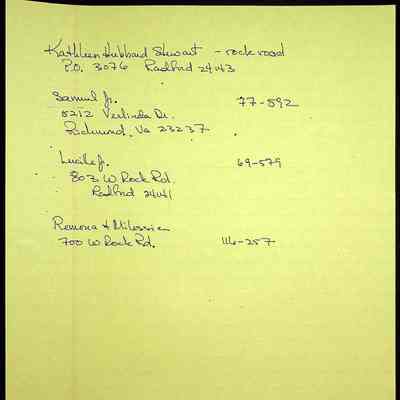 Kathleen Hubbard Stewart - rock road
P.O. 3076 Radford 24143
Samuel Jr. 77-592
5212 Verlinda Dr.
Richmond, Va 23237
Lucile J. 69-579
803 W. Rock Rd.
Radford 24141
Remona &
700 W Rock Rd. 116-257